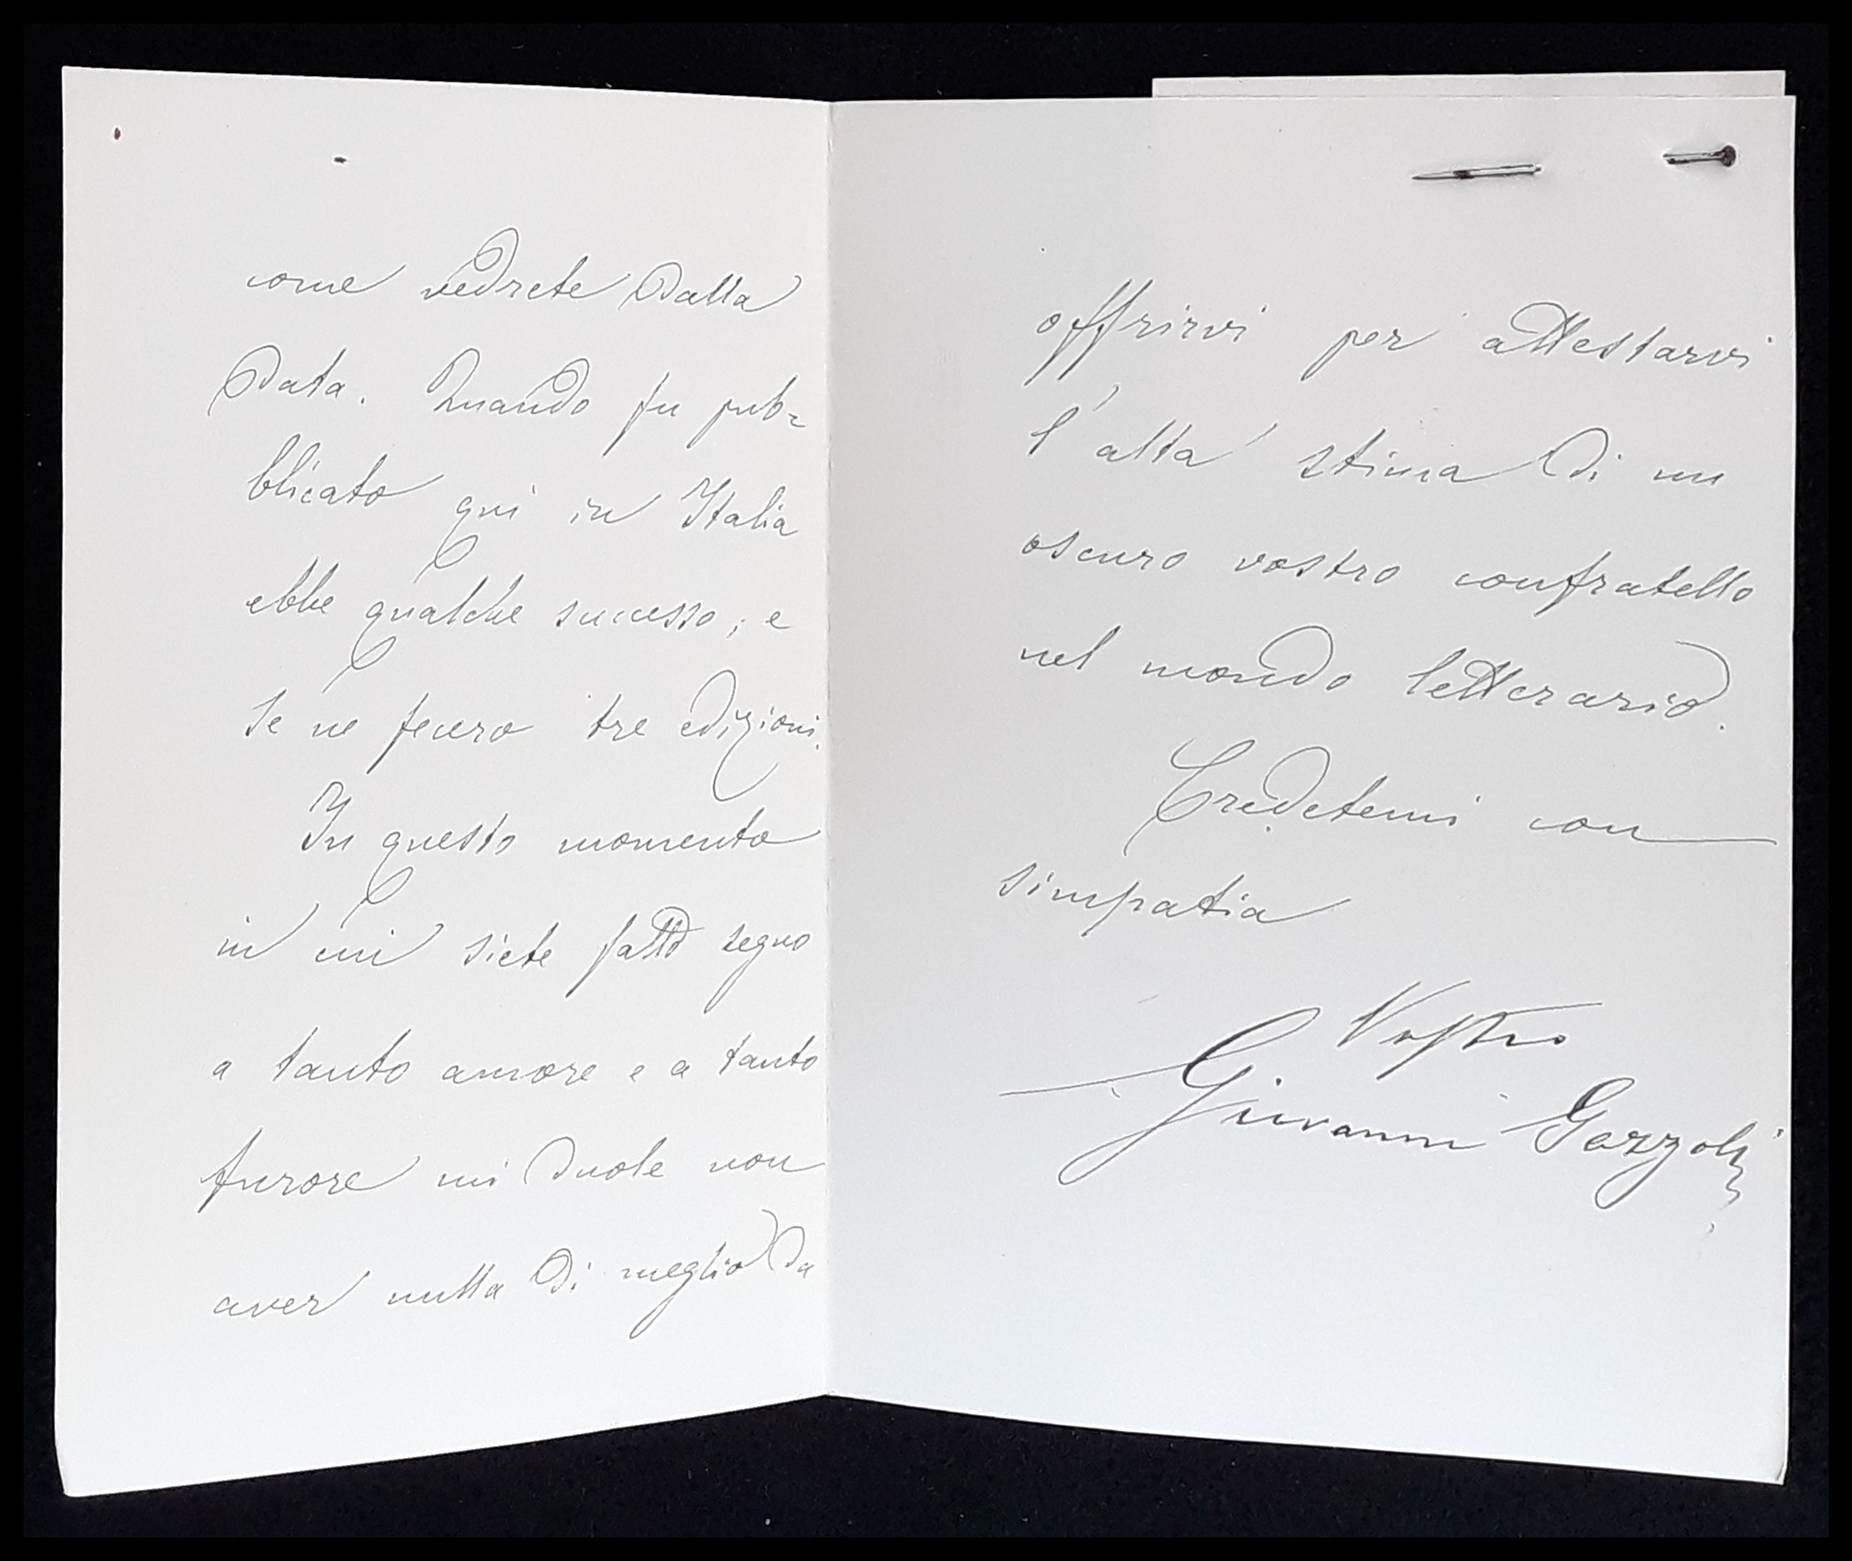 come vedrete dalla
data. Quando fu pub=
blicato qui in Italia
ebbe qualche successo, e
se ne fecero tre edizioni.
In questo momento
in cui siete fatto segno
a tanto amore e a tanto
furore mi duole non
aver nulla di meglio da
offrirvi per attestarvi
l'alta stima di un
oscuro vostro confratello
nel mondo letterario.
Credetemi con
simpatia
Vostro
Giovanni Gazzoli